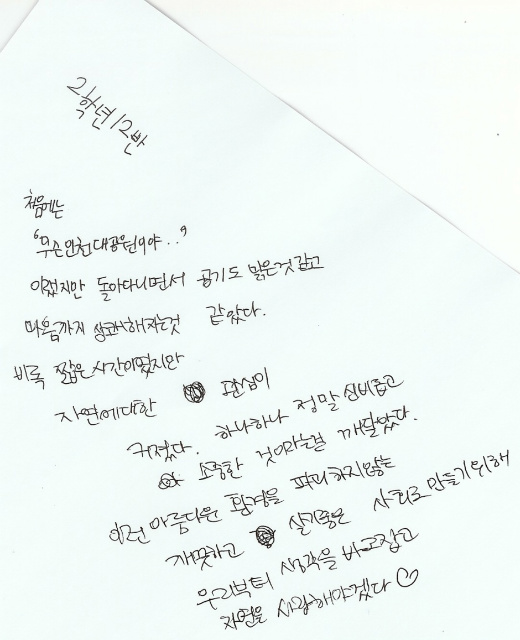 2학년 12반
처음에는
"무슨 인천대공원이야.."
이랬지만 돌아다니면서 공기도 맑은것 같고
마음까지 상쾌해지는것 같았다.
비록 짧은 시간이었지만
자연에대한 관심이
커졌다. 하나하나 정말 신비롭고
소중한 것이라는걸 깨달았다.
이런 아름다운 환경을 파괴하지않는
깨끗하고 살기좋은 사회로 만들기위해
우리부터 생각을 바로잡고
자연을 사랑해야겠다♡